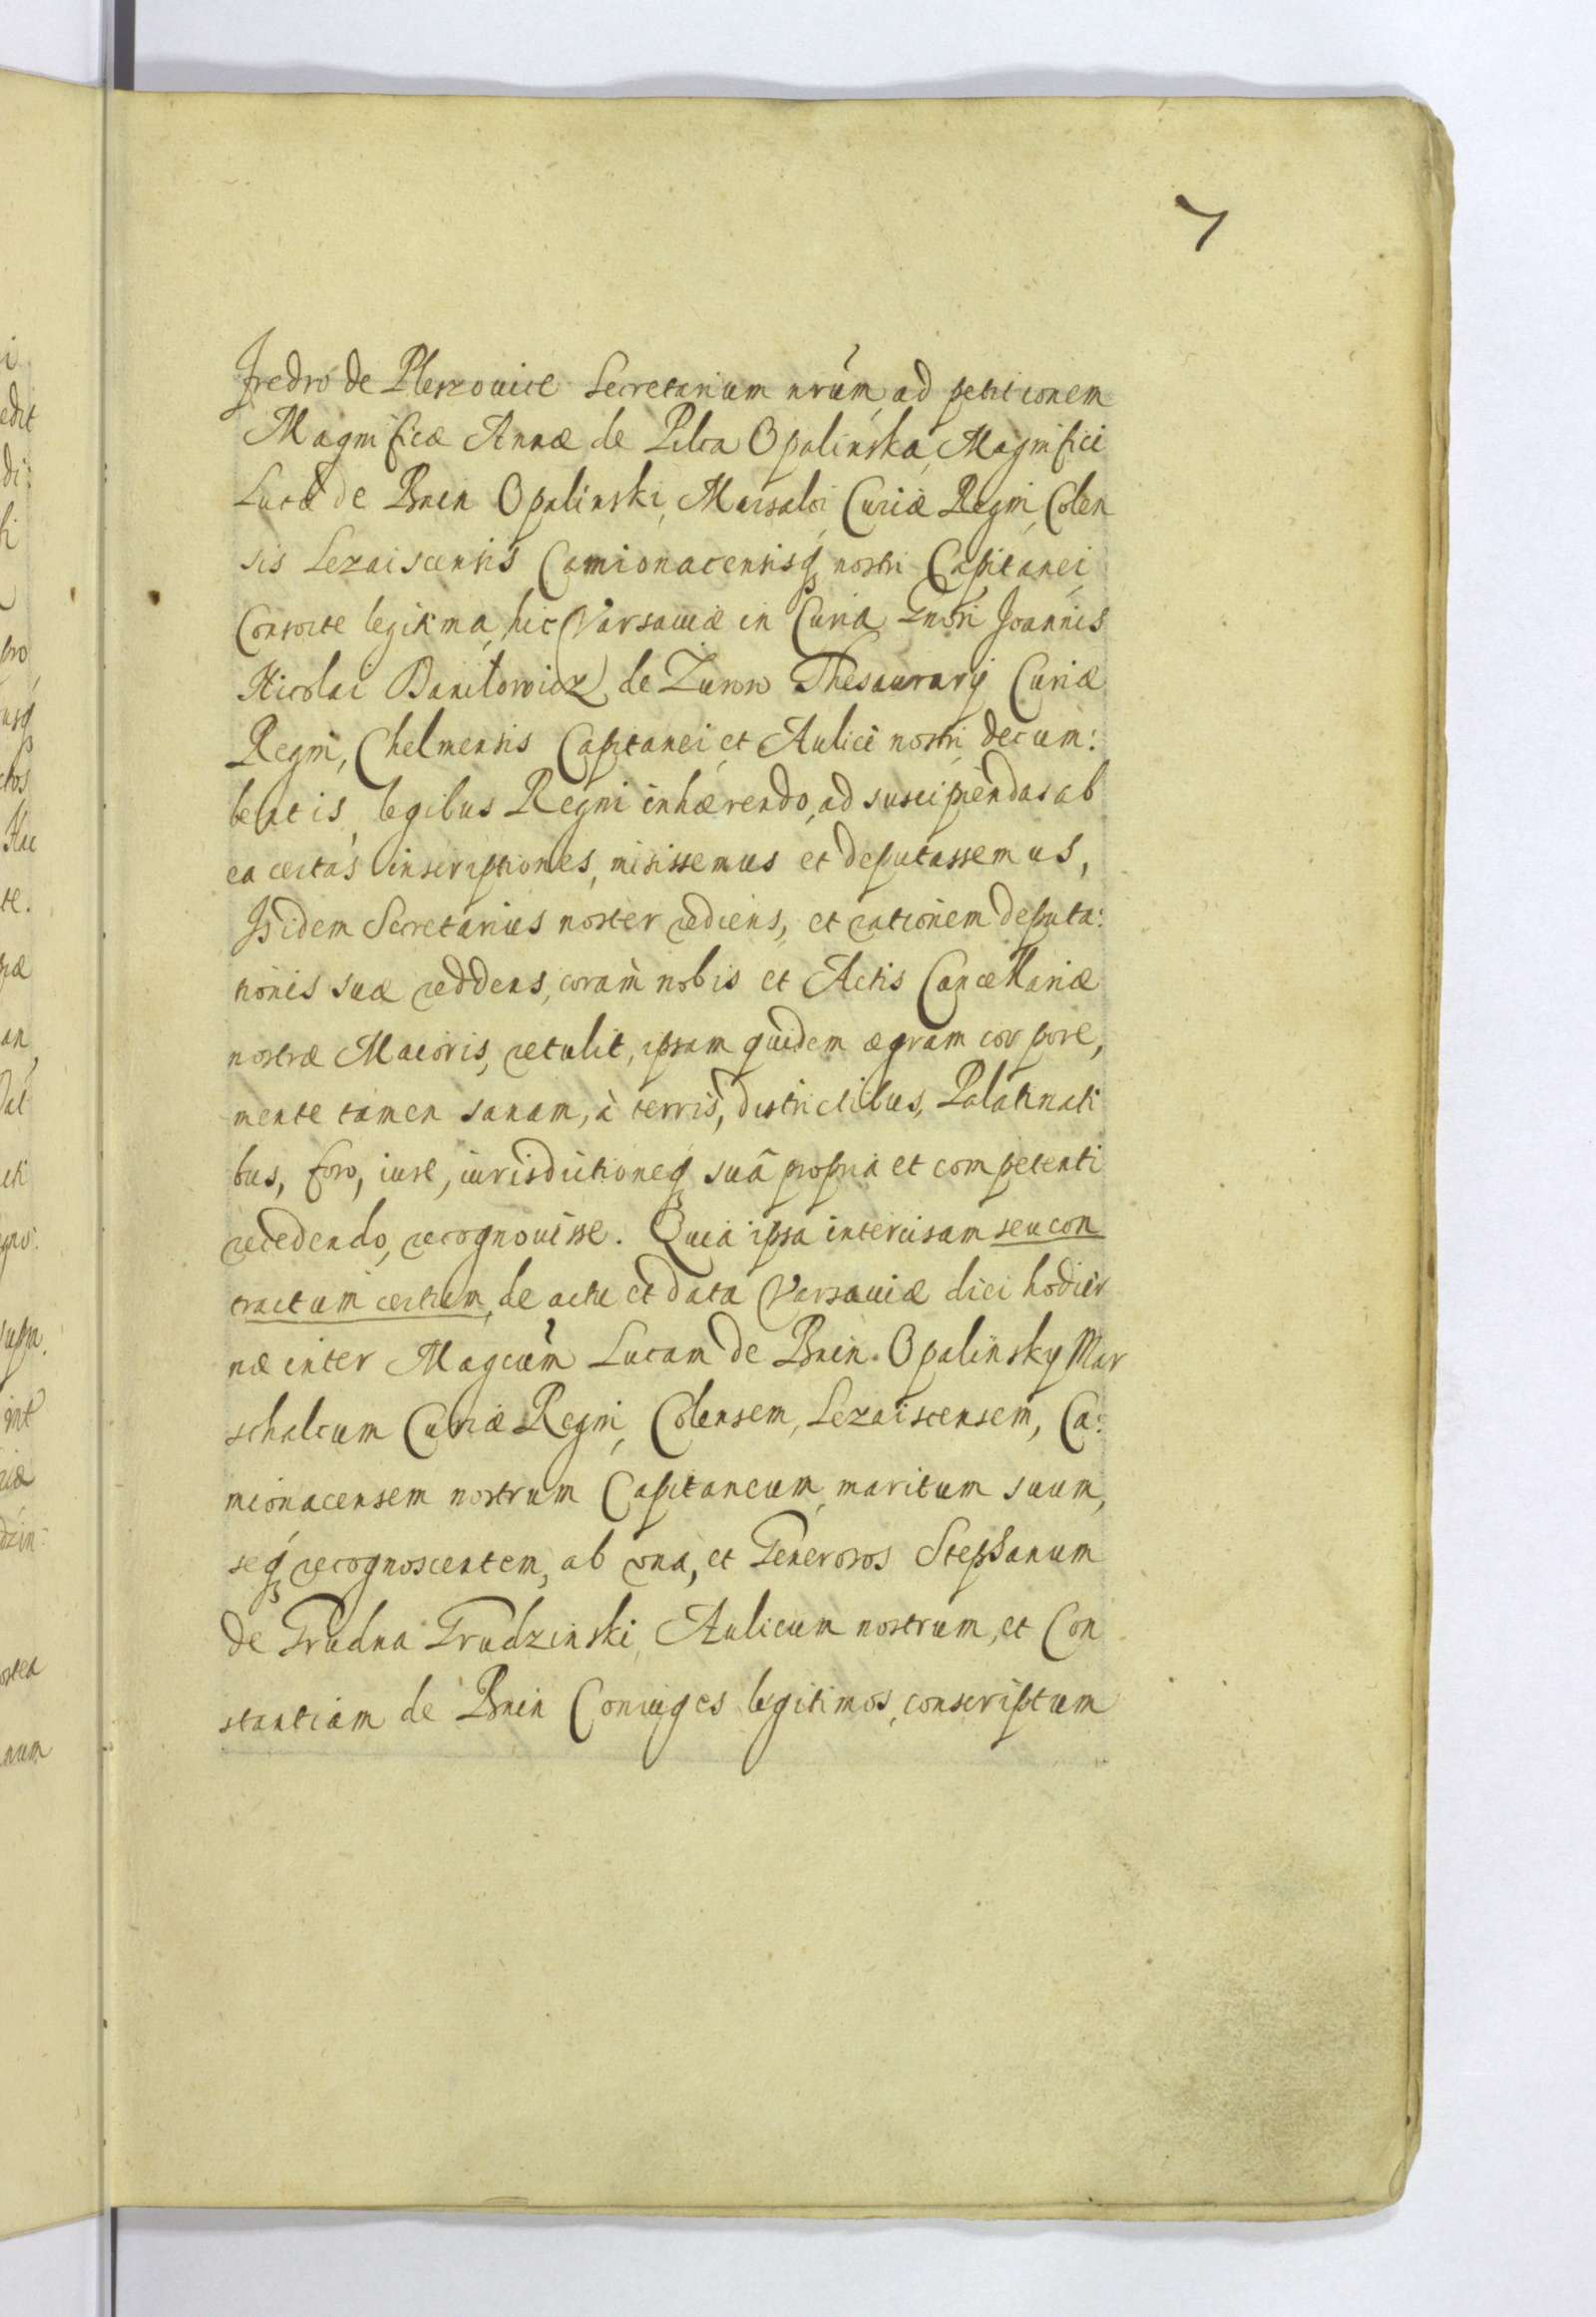 7
Fredro de Pleszouice Secretarium nrũm, ad petitionem
Magnificæ Annæ de Pilca Opalinska, Magnifici
Lucæ de Bnin Opalinski, Marsalci Curiæ Regni, Colen
sis Lezaiscensis Camionacensisq́ nostri Capitanei
Consorte legitima, hic Varsauiæ in Curia Gnõri Joannis
Nicolai Daniłowicz de Zurow Thesaurarij Curiæ
Regni, Chelmensis Capitanei, et Aulici nostri decum:
bentis, legibus Regni inhærendo, ad suscipiendas ab
ea certas inscriptiones, misissemus et deputassemus,
Isidem Secretarius noster rediens, et rationem deputa:
tionis suæ reddens, coram nobis et Actis Cancellariæ
nostræ Maioris, retulit, ipsam quidem ægram corpore,
mente tamen sanam, à terris, districtibus, Palatinati
bus, foro, iure, iurisdictioneq́ suâ propria et competenti
recedendo, recognouisse. Quia ipsa intercisam seu con
tractum certum, de actu et data Varsauiæ diei hodier
næ inter Magcũm Lucam de Bnin Opalinsky Mar
schalcum Curiæ Regni, Colensem, Lezaiscensem, Ca:
mionacensem nostrum Capitaneum, maritum suum,
seq́ recognoscentem, ab vna, et Generosos Stephanum
de Grudna Grudzinski, Aulicum nostrum, et Con
stantiam de Bnin Coniuges legitimos, conscriptum